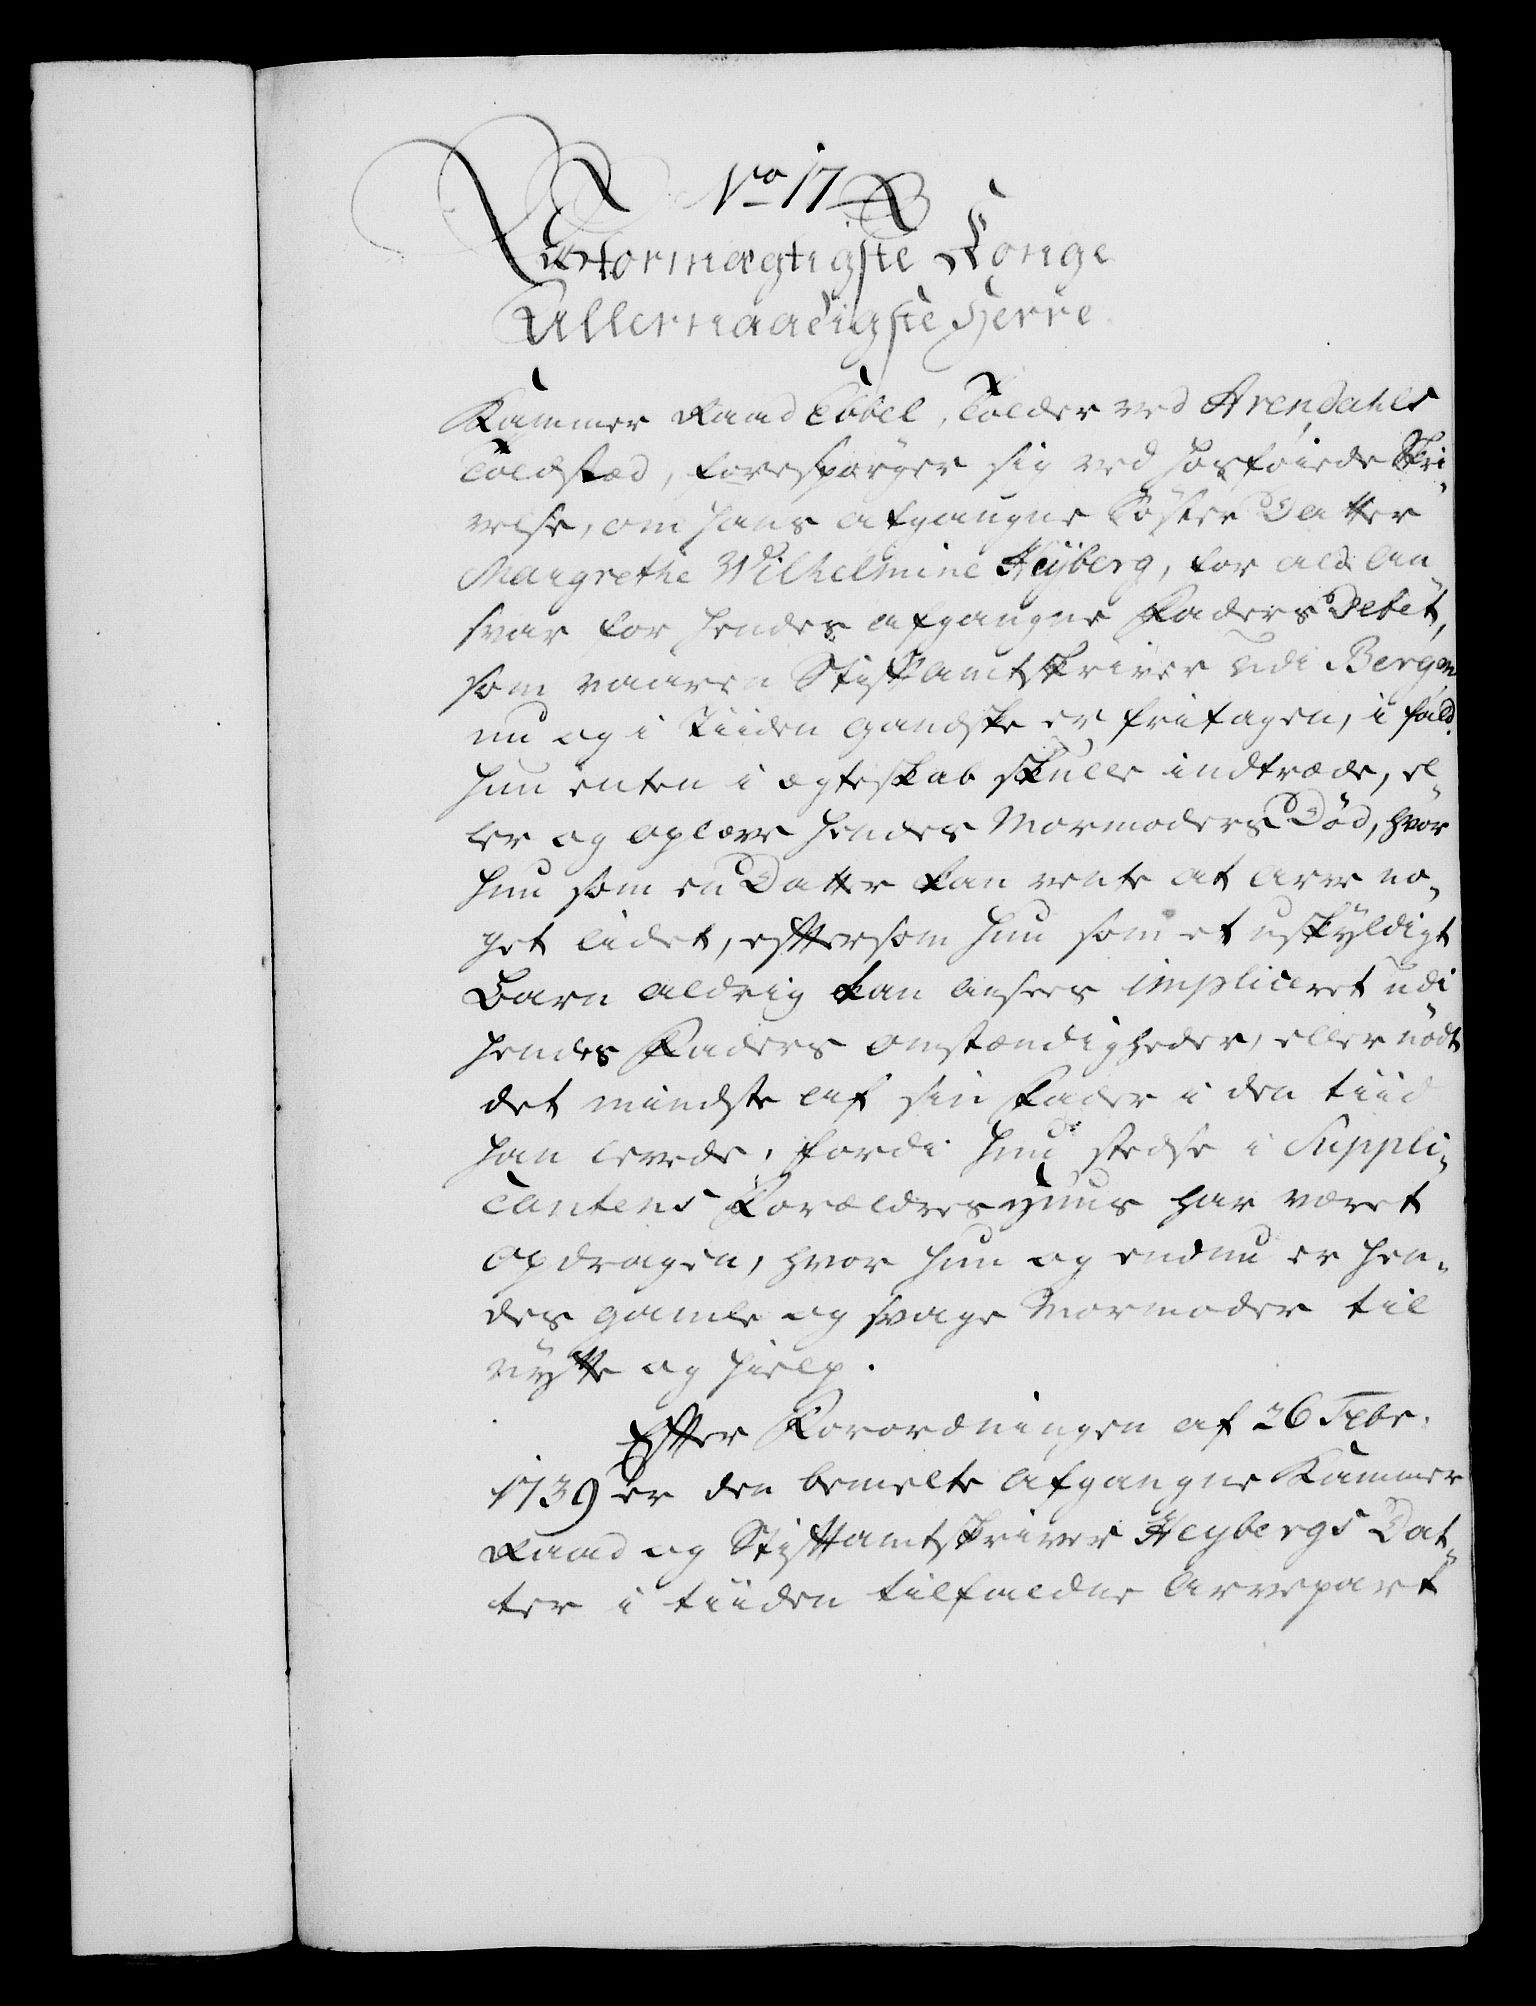 No 17
Stormægtigste Konge
Allernaadigste Herre
Kammer Raad Tobel, Tolder ved Arendahls
Toldsted, forespørger sig ved hosføiede Skri-
velse, om hans afgangne Söster Datter
Margrethe Wilhelmine Heyberg, for ald An-
svar for hendes afgangne Faders Debet,
som vaaren Stiftamtskriver udi Bergen
nu og i Tiiden gandske er fritagen, i fald
hun enten i ægteskab skulle indtræde, el-
ler og opleve hendes Mormoders Död, hvor
hun som en Datter kan vente at arve no-
get lidet, efftersom hun som et uskyldigt
Barn aldrig kan ansees impliceret udi
hendes Faders omstændigheder, eller nödt
det mindste af sin Fader i den tiid
han levede, fordi hun stedse i Suppli-
cantens Forældres Huus har været
opdragen, hvor hun og endnu er hen-
des gamle og svage Mormoder til
nytte og hielp.
Effter Forordningen af 26 Febr.
1739 er den bemelte afgangne Kammer
Raad og Stiftamtskriver Heybergs Dat-
ter i tiiden tilfaldne Arvepart